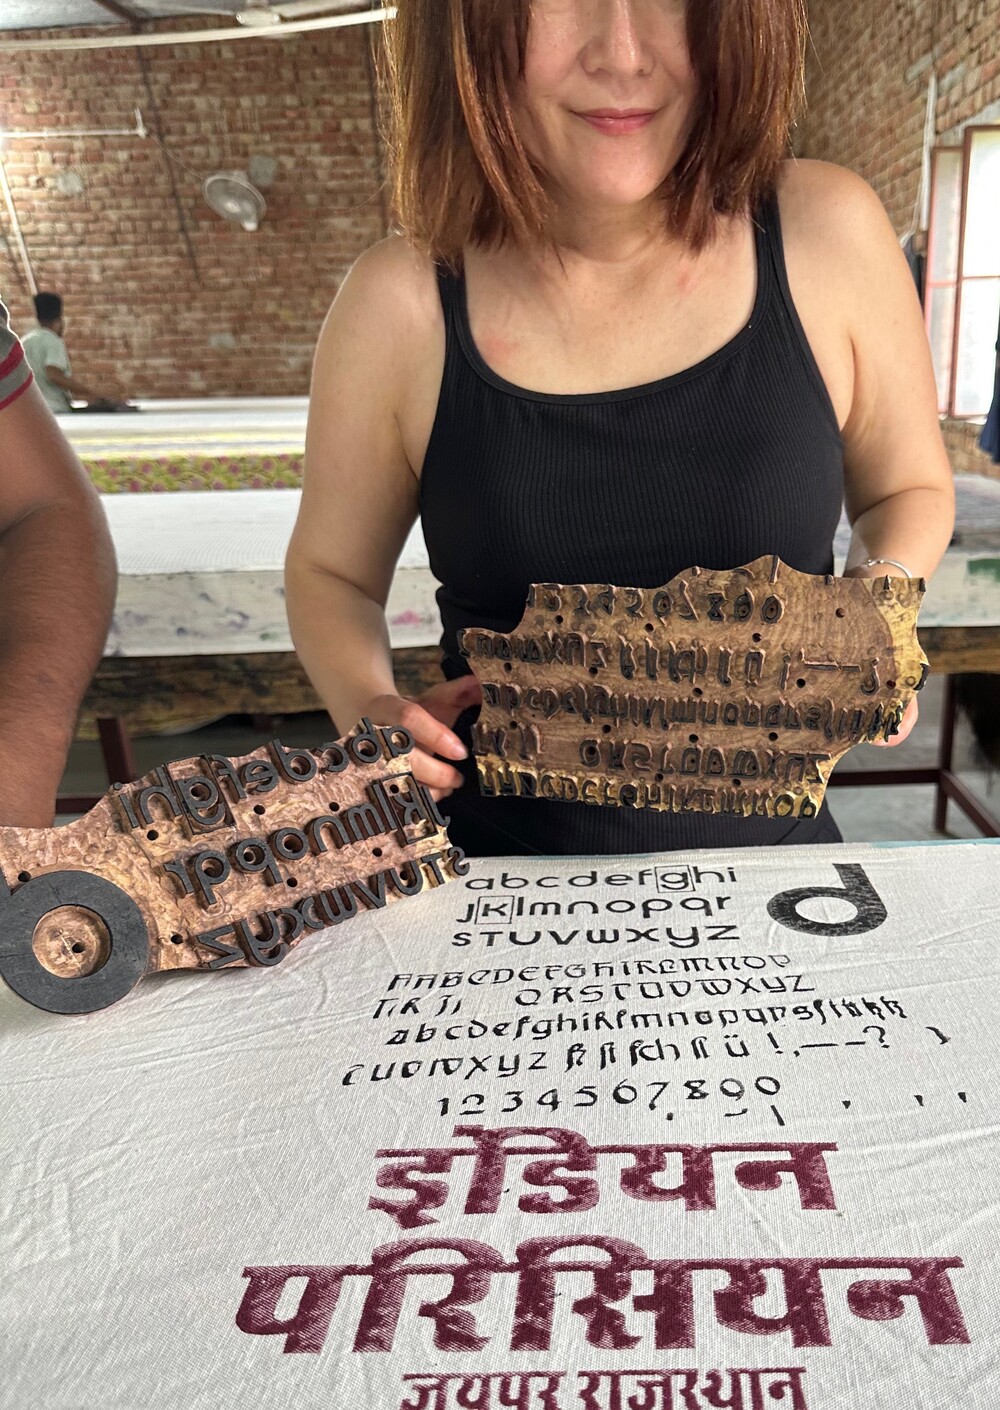 abcdefghi
jklmnopqr
stuvwxyz
d
ABCDEFGHIKLMNOP
QRSTUVWXYZ
abcdefghiklmnopqrsſ
uvwxyz ü ! , — — ?
1234567890
इंडियन
परिसियन
जयपुर राजस्थान